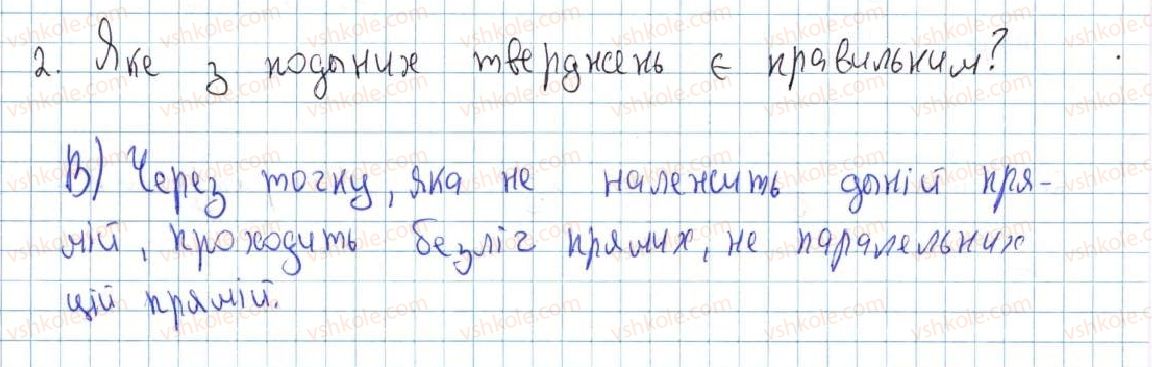 2. Яке з поданих тверджень є правильним?
В) Через точку, яка не належить даній пря-
мій, проходить безліч прямих, не паралельних
цій прямій.